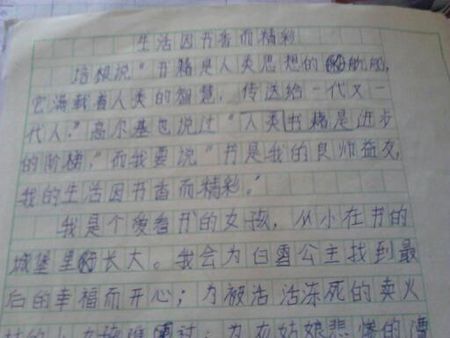 生活因书香而精彩
培根说“书籍是人类思想的航船,
它满载着人类的智慧,传送给一代又一
代人。”高尔基也说过“人类书籍是进步
的阶梯,”而我要说“书是我的良师益友,
我的生活因书香而精彩。”
我是个爱看书的女孩,从小在书的
城堡里长大。我会为白雪公主找到最
后的幸福而开心;为被活活冻死的卖火
柴的小女孩难过;为灰姑娘悲惨的遭